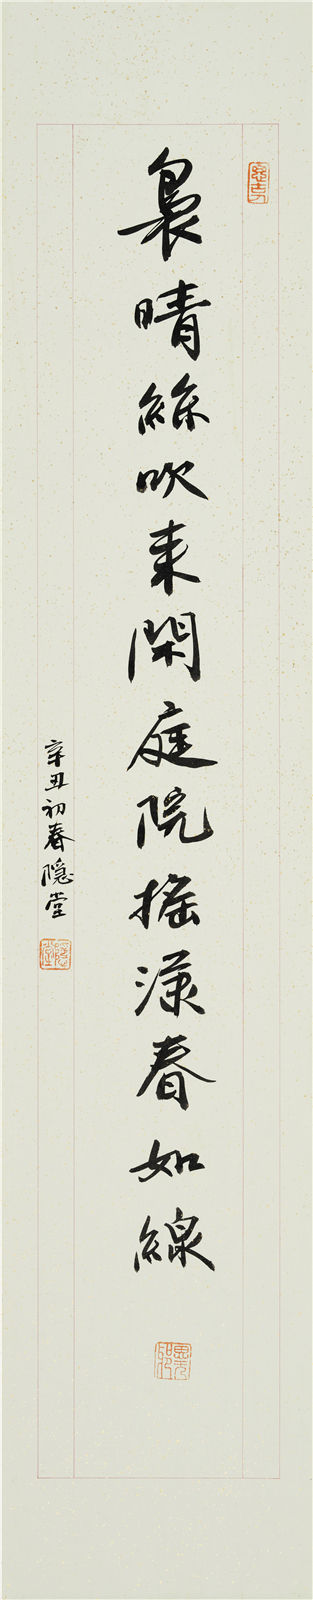 裊晴絲吹来閑庭院搖漾春如線
辛丑初春隐堂
隱堂